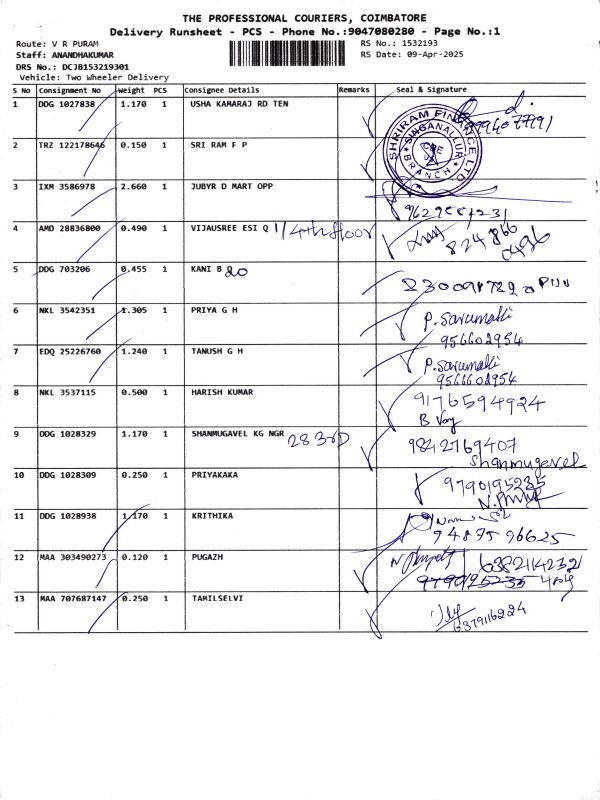 THE PROFESSIONAL COURIERS, COIMBATORE
Delivery Runsheet - PCS - Phone No.:9047080280 - Page No.:1
Route: V R PURAM
RS No.: 1532193
Staff: ANANDHAKUMAR
RS Date: 09-Apr-2025
DRS No.: DCJB153219301
Vehicle: Two Wheeler Delivery
S No Consignment No Weight PCS Consignee Details Remarks Seal & Signature
1 DDG 1027838 1.170 1 USHA KAMARAJ RD TEN
SHRIRAM FINANCE LTD. SINGANALLUR BRANCH
2 TRZ 122178646 0.150 1 SRI RAM F P
3 IXM 3586978 2.660 1 JUBYR D MART OPP
4 AMD 28836800 0.490 1 VIJAUSREE ESI Q 1/4th floor
824 866
0496
5 DDG 703206 0.455 1 KANI B 20
6 NKL 3542351 1.305 1 PRIYA G H P. Sarumaki
956602954
7 EDQ 25226760 1.240 1 TANUSH G H P. Sarumaki
9566602954
8 NKL 3537115 0.500 1 HARISH KUMAR 9176594924
9 DDG 1028329 1.170 1 SHANMUGAVEL KG NGR 28 3rD 9842769407
Shanmugavel
10 DDG 1028309 0.250 1 PRIYAKAKA 9790195235
11 DDG 1028938 1.170 1 KRITHIKA
94875 96625
12 MAA 303490273 0.120 1 PUGAZH 6382114232
9790195235
13 MAA 707687147 0.250 1 TAMILSELVI
6379116224